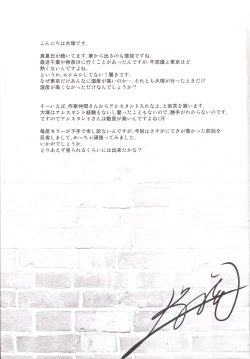 こんにちは大塚です。
真夏日が続いてます。家から出るのも億劫ですね。
最近千葉や神奈川に行くことがあったんですが、不思議と東京ほど
熱くないんですよね。
というか、ムシムシしてない！驚きです。
なぜ東京だけあんなに湿度が高いのか…、それとも大塚が行ったときだけ
湿度が高くなかっただけなんでしょうか？
そーいえば、作家仲間さんからアシスタント入れなよ、と助言を頂います。
大塚はアシスタント経験もないし雇ったこともないので、勝手がわからないのです。
ですのでアシスタントさんは敷居が高いんですよね（汗
毎度カラーが下手で申し訳ないんですが、今回はさすがにできが悪かった前回を
反省しまして、めっちゃ頑張ってみました。
いかがでしょうか。
とりあえず見られるくらいには出来たかな？